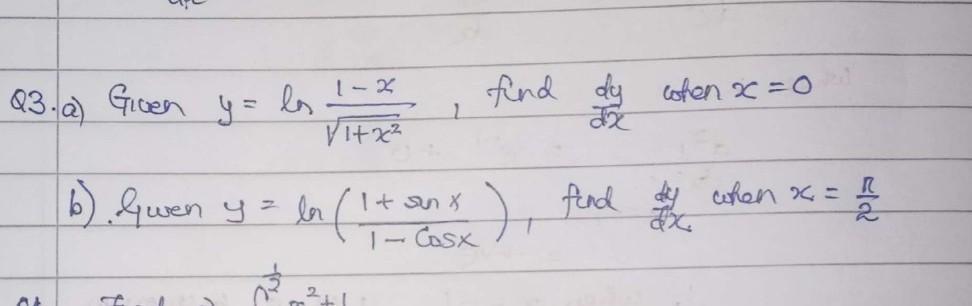 Q3. a) Given y = ln (1-x)/√(1+x²), find dy/dx when x = 0
b). Given y = ln ((1 + sin x)/(1 - Cosx)), find dy/dx when x = π/2